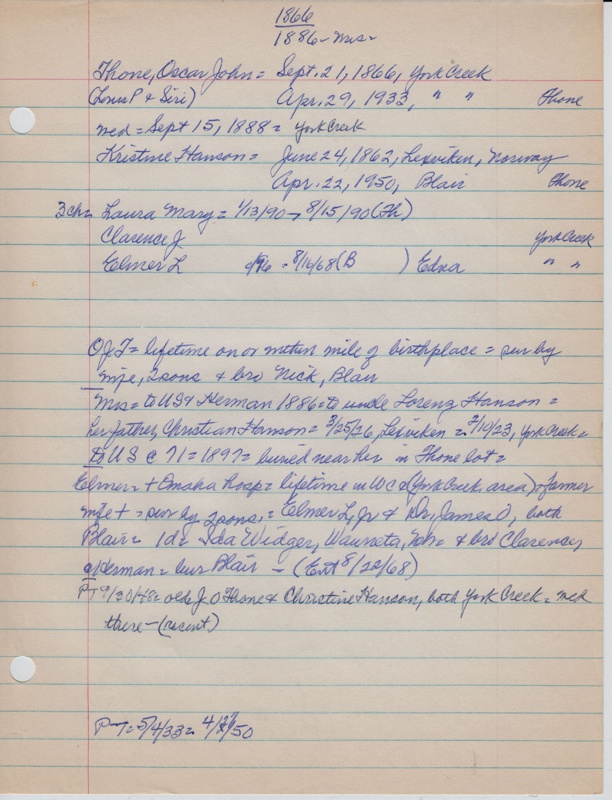 1866
1886 - Mrs -
Thone, Oscar John = Sept. 21, 1866, York Creek
(Louis P & Siri) Apr. 29, 1933, " " Thone
med = Sept 15, 1888 = York Creek
Kristine Hanson = June 24, 1862, Lexviken, Norway
Apr. 22, 1950, Blair Thone
3 ch = Laura Mary = 1/13/90 → 8/15/90 (Th)
Clarence J York Creek
Elmer L = 8/16/68 (B ) Edna " "
O J T = lifetime on or within mile of birthplace = sur by
wife, 2 sons & bro Nick, Blair
Mrs = to US & Herman 1886 = to uncle Lorenz Hanson =
her father, Christian Hanson = 3/25/26, Lexviken = 2/10/23, York Creek =
to US c 71 = 1897 = buried near her in Thone lot =
Elmer = + Omaha hosp = lifetime in WC (York Creek area) = farmer
wife + = sur by 2 sons, = Elmer L, Jr & Dr, James O, both
Blair = 1 d = Ida Widger, Wauneta, & bro Clarence,
Herman = bur Blair - (Ent 8/20/68)
PT 9/30/48 = old J O Thone & Christine Hanson, both York Creek = med
there - (recent)
PT = 5/4/33 = /50